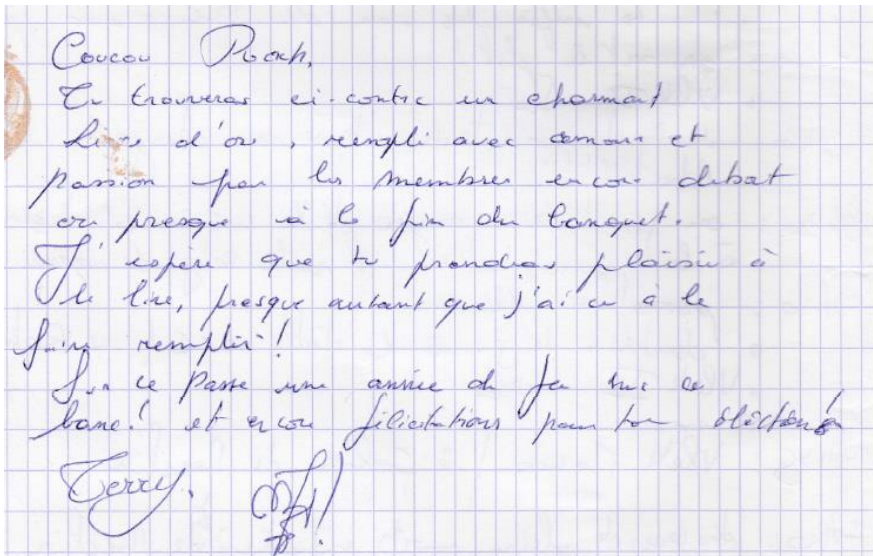 Coucou Pooch,
Tu trouveras ci-contre un charmant
livre d'or, rempli avec amour et
passion par les membres encore debout
ou presque à la fin du banquet.
J'espère que tu prendras plaisir à
le lire, presque autant que j'ai eu à le
faire remplir!
Sur ce Passe une année de feu sur ce
banc! et encore félicitations pour ton élection!
Terry.